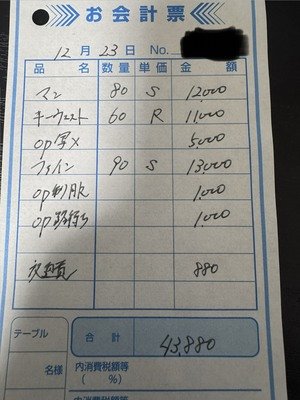 お会計票
12月23日 No.
品名 数量 単価 金額
マン 80 S 12,000
キーウェスト 60 R 11,000
op写メ 5,000
ファイン 90 S 13,000
op制服 1,000
op 1,000
交通費 880
テーブル
合計 43,880
名様
内消費税額等
( %)
内消費税額等